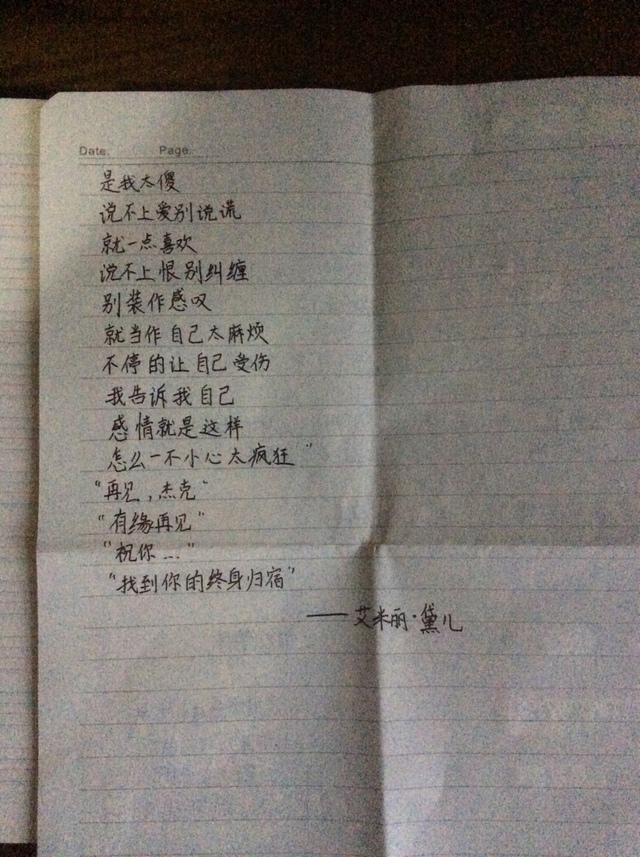 Date. Page.
是我太傻
说不上爱别说谎
就一点喜欢
说不上恨别纠缠
别装作感叹
就当作自己太麻烦
不停的让自己受伤
我告诉我自己
感情就是这样
怎么一不小心太疯狂"
"再见,杰克"
"有缘再见"
"祝你..."
"找到你的终身归宿"
——艾米丽·黛儿